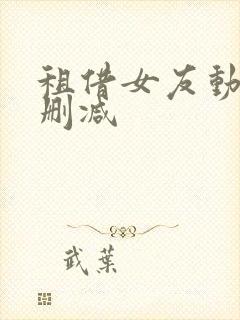 租借女友動
刪減
武葉